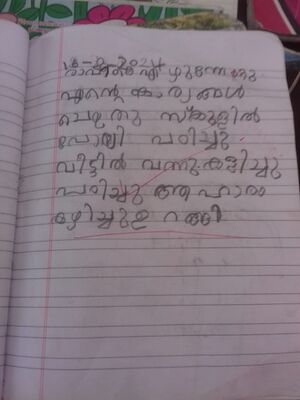 16-8-2024
രാവിലെ എഴുന്നേറ്റു
എന്റെ കാര്യങ്ങൾ
ചെയ്തു സ്കൂളിൽ
പോയി പഠിച്ചു
വീട്ടിൽ വന്നു കളിച്ചു
പഠിച്ചു ആഹാരം
കഴിച്ചു ഉറങ്ങി